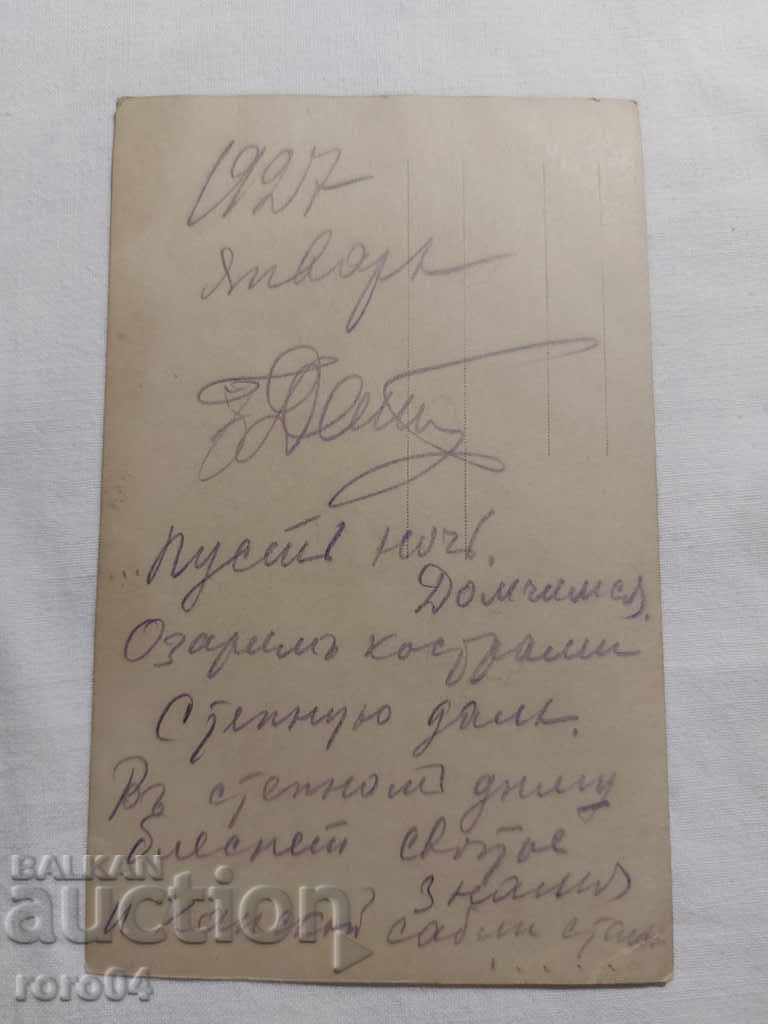 1927
январь
...Пусть ночь.
Домчимся.
Озаримъ кострами
Степную даль.
Въ степномъ дыму
блеснет святое
знамя
И Ханской сабли сталь
.....
BALKAN
auction
roro04